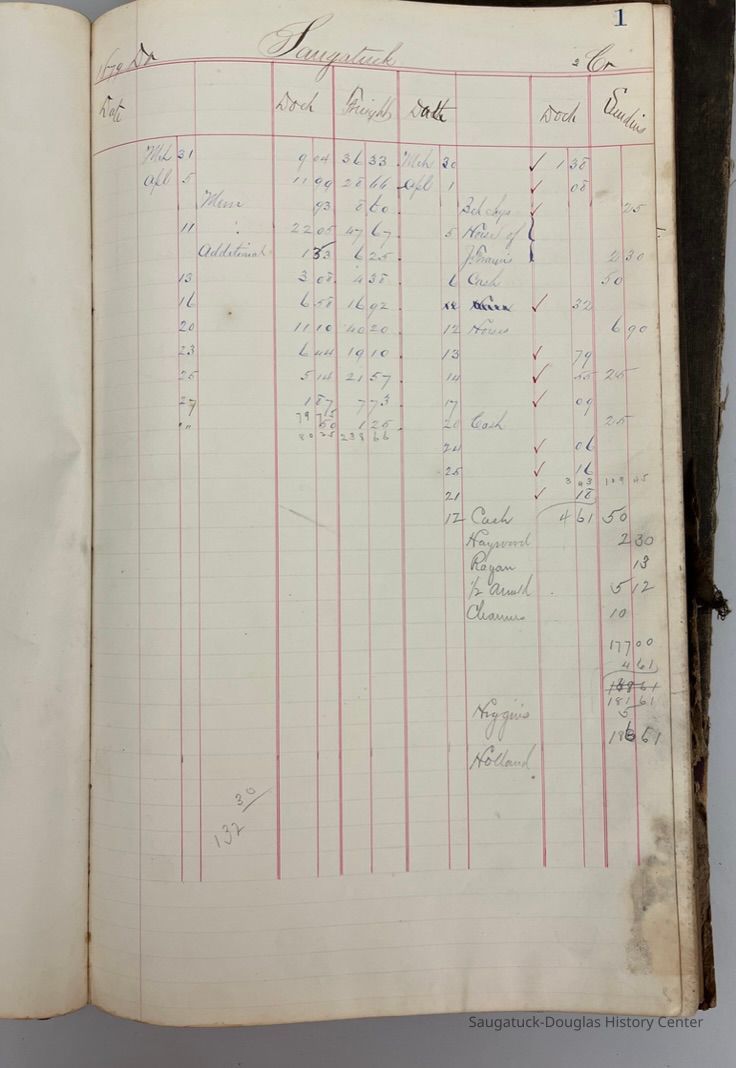 1
Saugatuck
1879 Dr Cr
Date Dock Freight Date Dock
Mch 31 9 04 36 33 Mch 30 ✓ 1 38
Apl 5 11 99 28 66 Apl 1 ✓ 08
93 8 60 ✓ 25
11 22 05 47 67 5 of
Additional 1 53 6 25 2 30
13 3 08 4 38 6 Cash 50
16 6 58 16 92 ✓ 32
20 11 10 40 20 12 6 90
23 6 44 19 10 13 ✓ 79
25 5 14 21 57 14 ✓ 55 25
27 1 87 7 73 17 ✓ 09
79 75
" 50 1 25 20 Cash 25
80 25 238 66
24 ✓ 06
25 ✓ 16
3 93 109 45
21 ✓ 18
12 Cash 4 61 50
Haywood 2 30
Ragan 13
1/2 Arnold 5 12
10
177 00
4 61
181 61
Higgins 5
186 61
Holland
30
132
Saugatuck-Douglas History Center